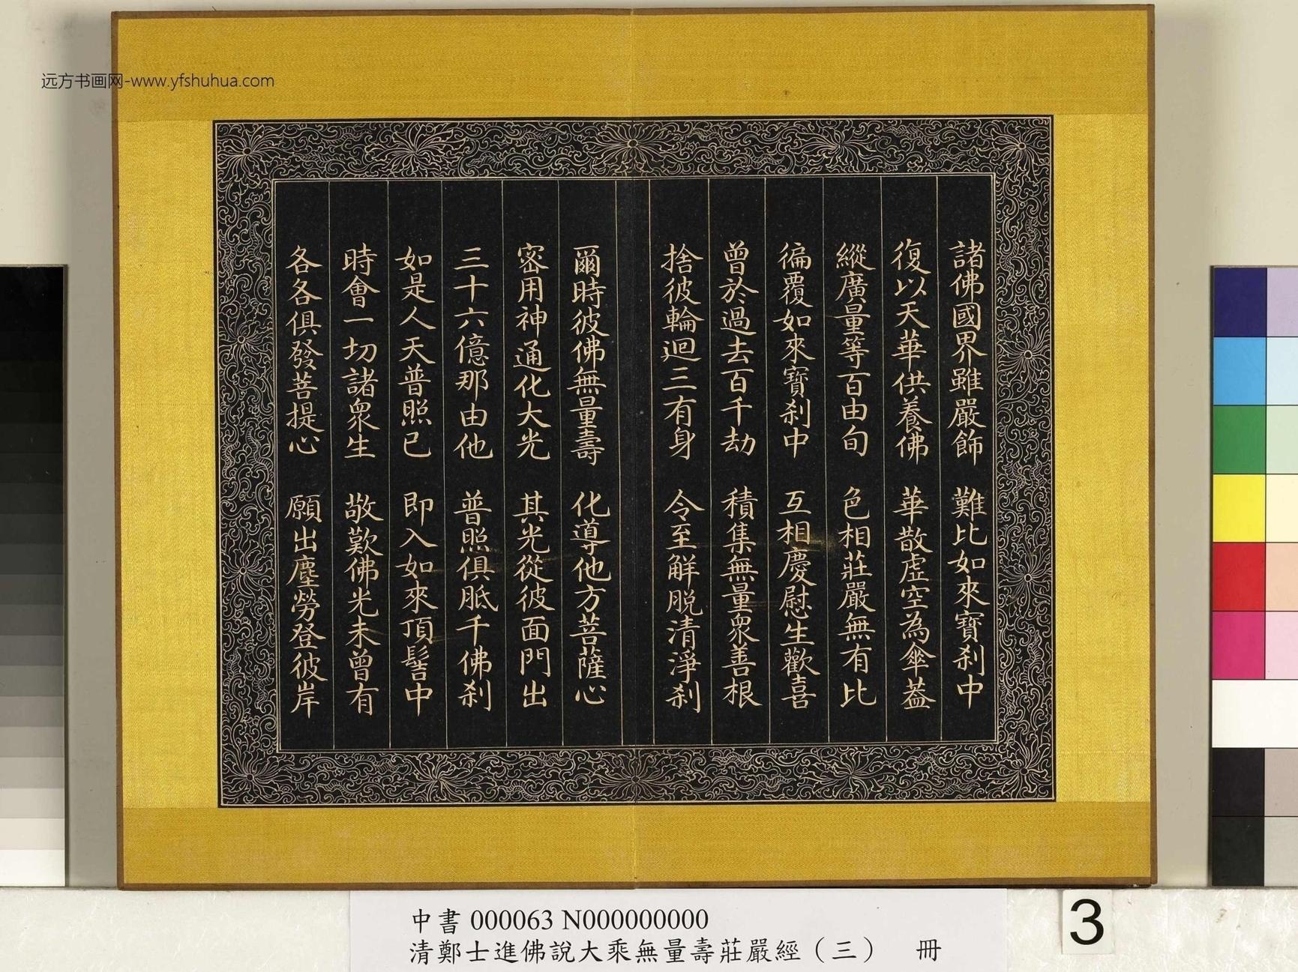 远方书画网-www.yfshuhua.com
諸佛國界雖嚴飾　難比如來寶刹中
復以天華供養佛　華散虛空為傘葢
縱廣量等百由旬　色相莊嚴無有比
徧覆如來寶刹中　互相慶慰生歡喜
曾於過去百千劫　積集無量衆善根
捨彼輪迴三有身　令至解脱清淨刹
爾時彼佛無量壽　化導他方菩薩心
密用神通化大光　其光從彼面門出
三十六億那由他　普照俱胝千佛刹
如是人天普照已　即入如來頂髻中
時會一切諸衆生　敬歎佛光未曾有
各各俱發菩提心　願出塵勞登彼岸
中書 000063 N000000000
清鄭士進佛說大乘無量壽莊嚴經（三）　冊
3